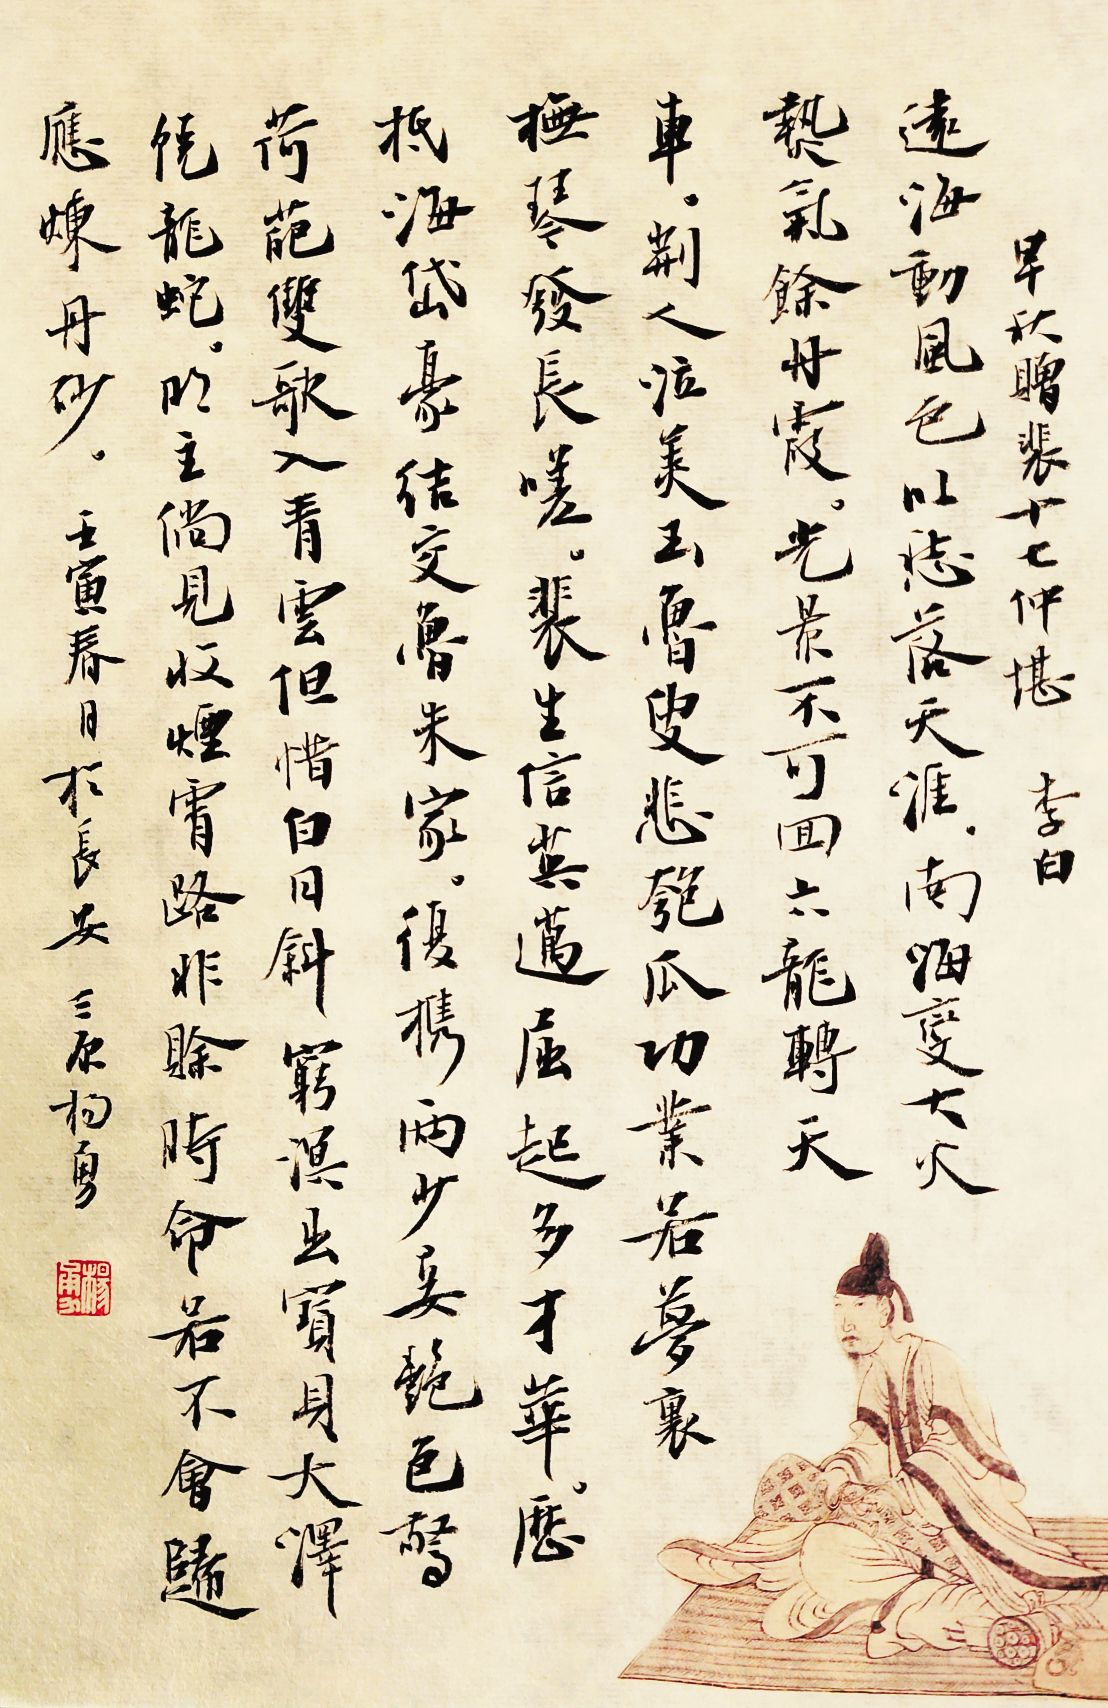 早秋贈裴十七仲堪 李白
遠海動風色吹愁落天涯。南海變大火
熱氣餘丹霞。光景不可回六龍轉天
車。荆人泣美玉魯叟悲匏瓜功業若夢裏
撫琴發長嗟。裴生信英邁屈起多才華。歷
抵海岱豪結交魯朱家。復攜兩少妾艷色驚
荷葩雙歌入青雲但惜白日斜窮溟出寶貝大澤
饒龍蛇。明主倘見收煙霄路非賒時命若不會歸
應煉丹砂。壬寅春日於長安三原楊勇
楊勇